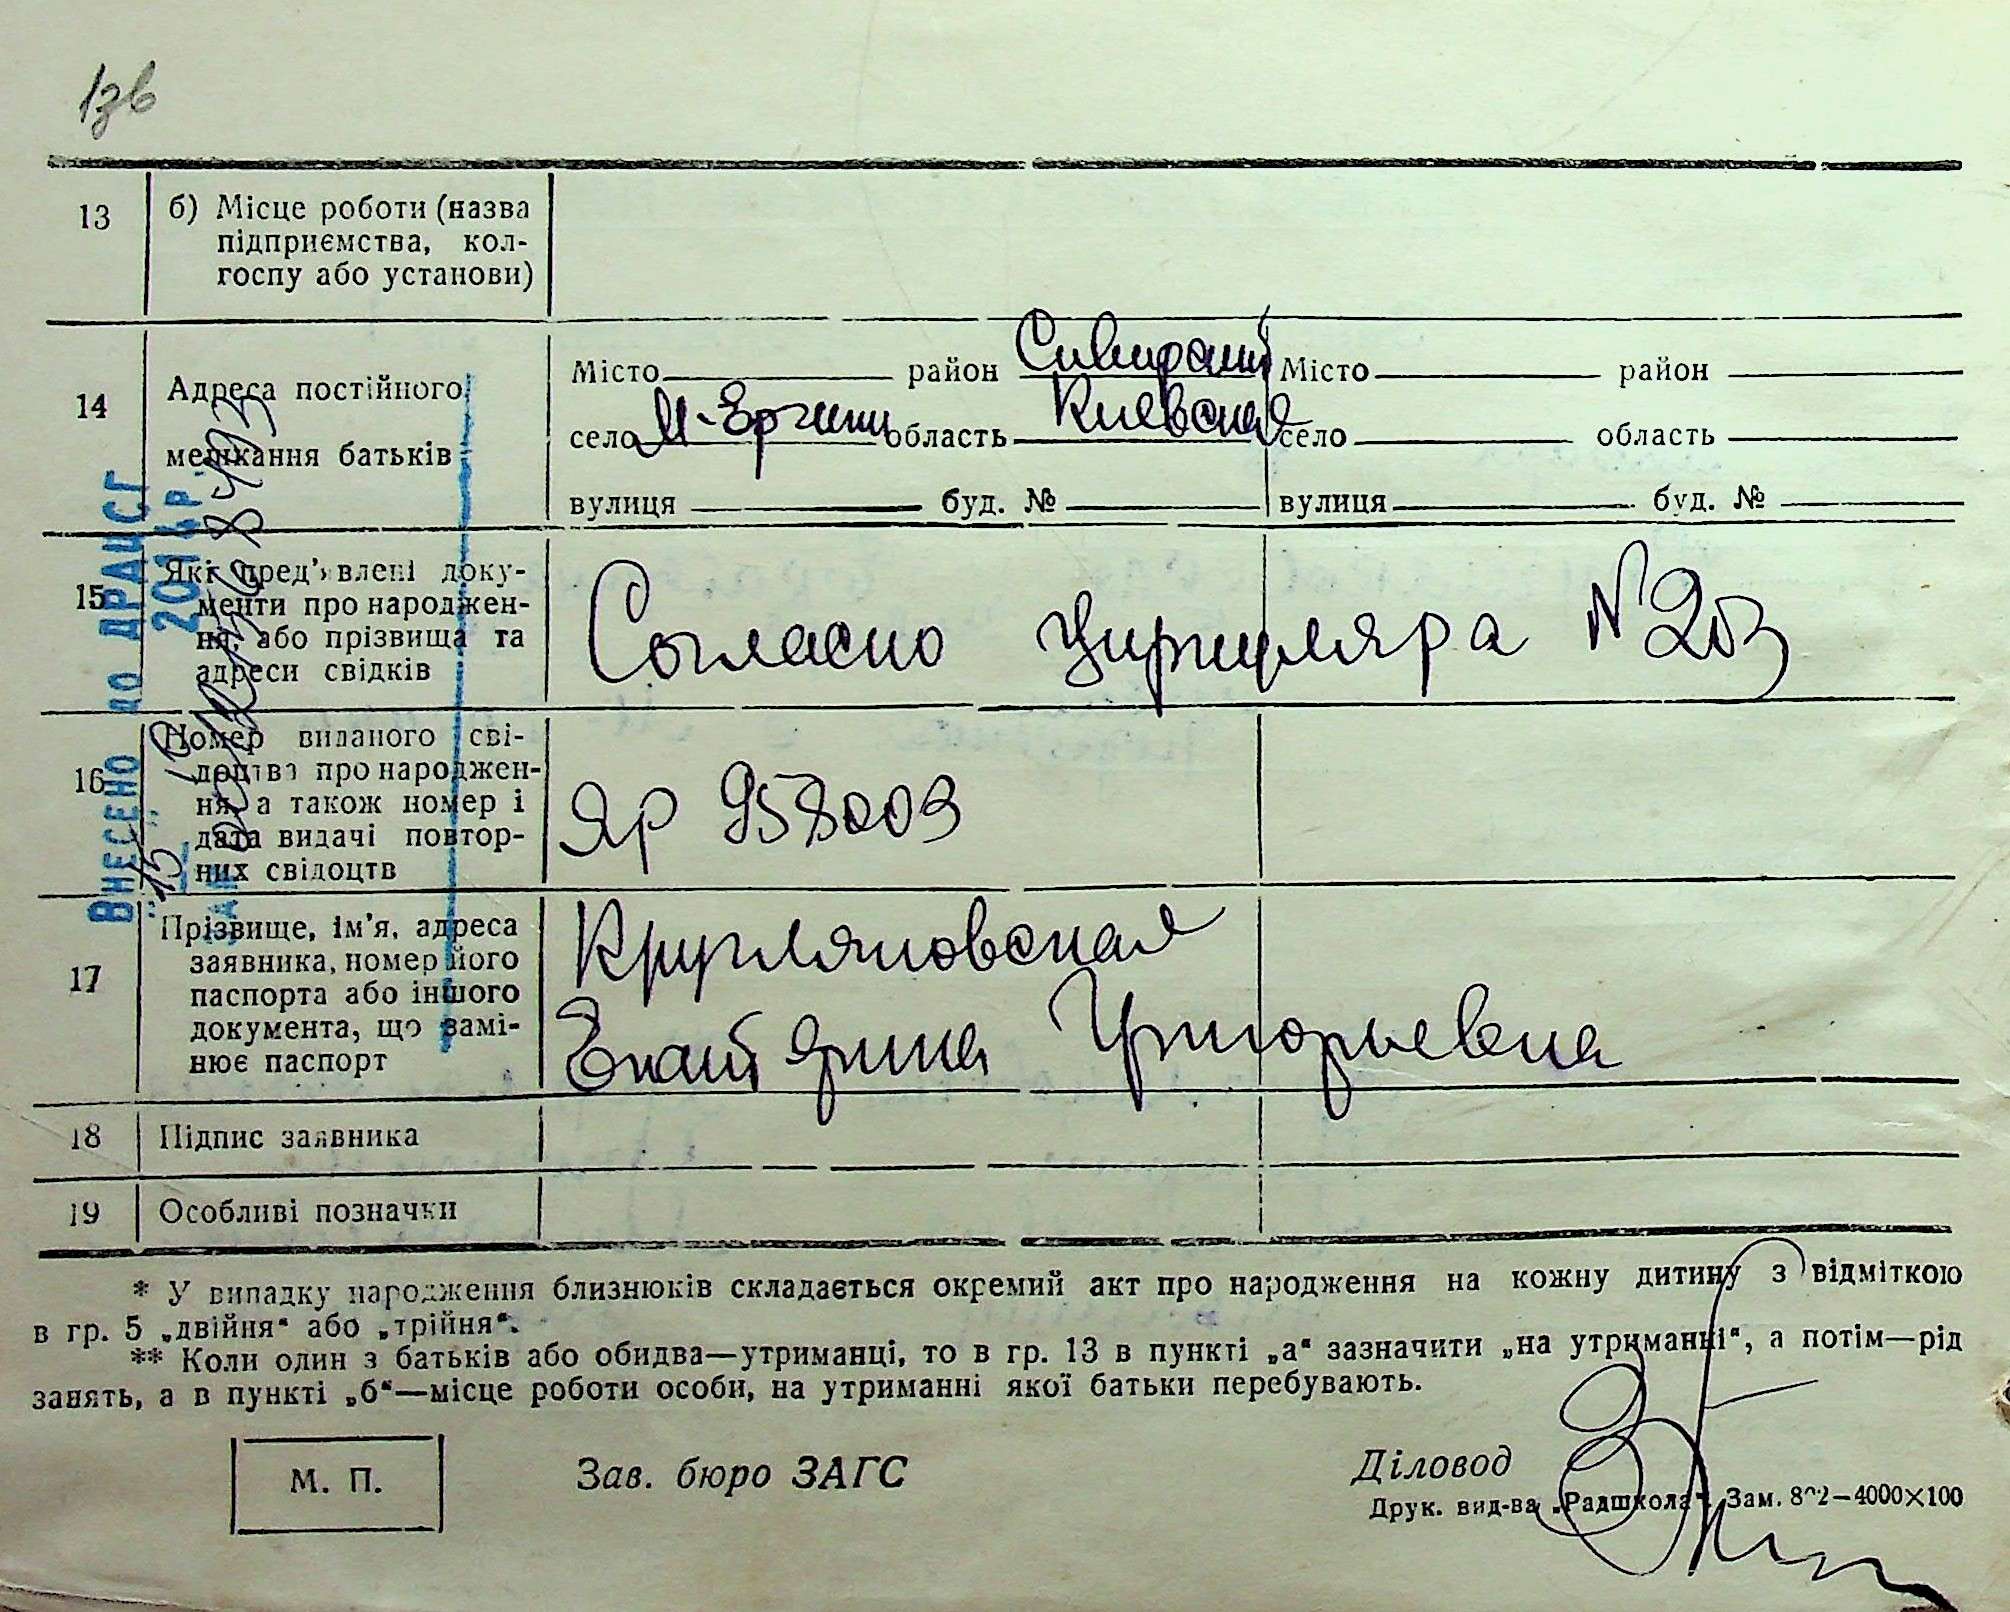 13 б) Місце роботи (назва
підприємства, кол-
госпу або установи)
14 Адреса постійного
мешкання батьків
Місто район Місто район
село М-Ерчики область Киевская село область
вулиця буд. № вулиця буд. №
15 Які пред'явлені доку-
менти про народжен-
ня, або прізвища та
адреси свідків
Согласно Циркуляра №203
16 Номер виданого сві-
доцтва про народжен-
ня, а також номер і
дата видачі повтор-
них свідоцтв
ЯР 958009
17 Прізвище, ім'я, адреса
заявника, номер його
паспорта або іншого
документа, що замі-
нює паспорт
Екатярина Григорьевна
18 Підпис заявника
19 Особливі позначки
* У випадку народження близнюків складається окремий акт про народження на кожну дитину з відміткою
в гр. 5 „двійня“ або „трійня“.
** Коли один з батьків або обидва—утриманці, то в гр. 13 в пункті „а“ зазначити „на утриманні“, а потім—рід
занять, а в пункті „б“—місце роботи особи, на утриманні якої батьки перебувають.
М. П. Зав. бюро ЗАГС Діловод
Друк. вид-ва „Радшкола“. Зам. –4000×100
ВНЕСЕНО ДО ДРАЦСГ
"15" 201 р.